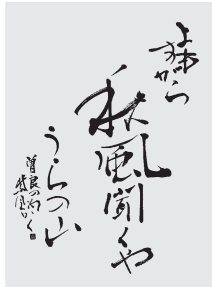 よもすから
秋風聞くや
うらの山
曽良の句